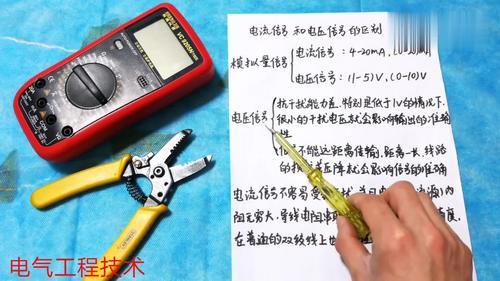 电流信号和电压信号的区别
模拟量信号
电流信号：4-20mA,
电压信号：(1-5)V,(0-10)V
电压信号
抗干扰能力差,特别是低于1V的情况下,
很小的干扰电压就会影响输出的准确
性
不能远距离传输,距离一长,线路
的 压降就会影响信号的准确
电流信号不容易受 内
阻无穷大,导线电阻串 度,
在普通的双绞线上
VC890D
电气工程技术